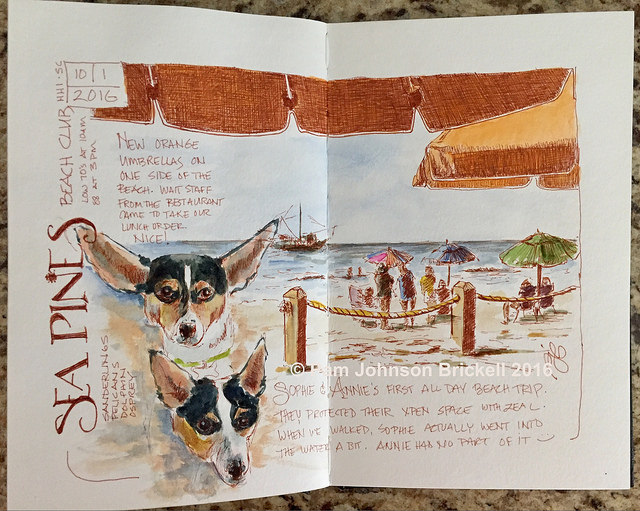 10 | 1
2016
SEA PINES
BEACH CLUB HHI · SC
LOW 70'S AT 10AM
88 AT 3 PM
NEW ORANGE
UMBRELLAS ON
ONE SIDE OF THE
BEACH. WAIT STAFF
FROM THE RESTAURANT
CAME TO TAKE OUR
LUNCH ORDER
NICE!
SANDERLINGS
PELICANS
DOLPHIN
OSPREY
© Pam Johnson Brickell 2016
SOPHIE & ANNIE'S FIRST ALL DAY BEACH TRIP.
THEY PROTECTED THEIR XPEN SPACE WITH ZEAL.
WHEN WE WALKED, SOPHIE ACTUALLY WENT INTO
THE WATER A BIT. ANNIE HAD NO PART OF IT